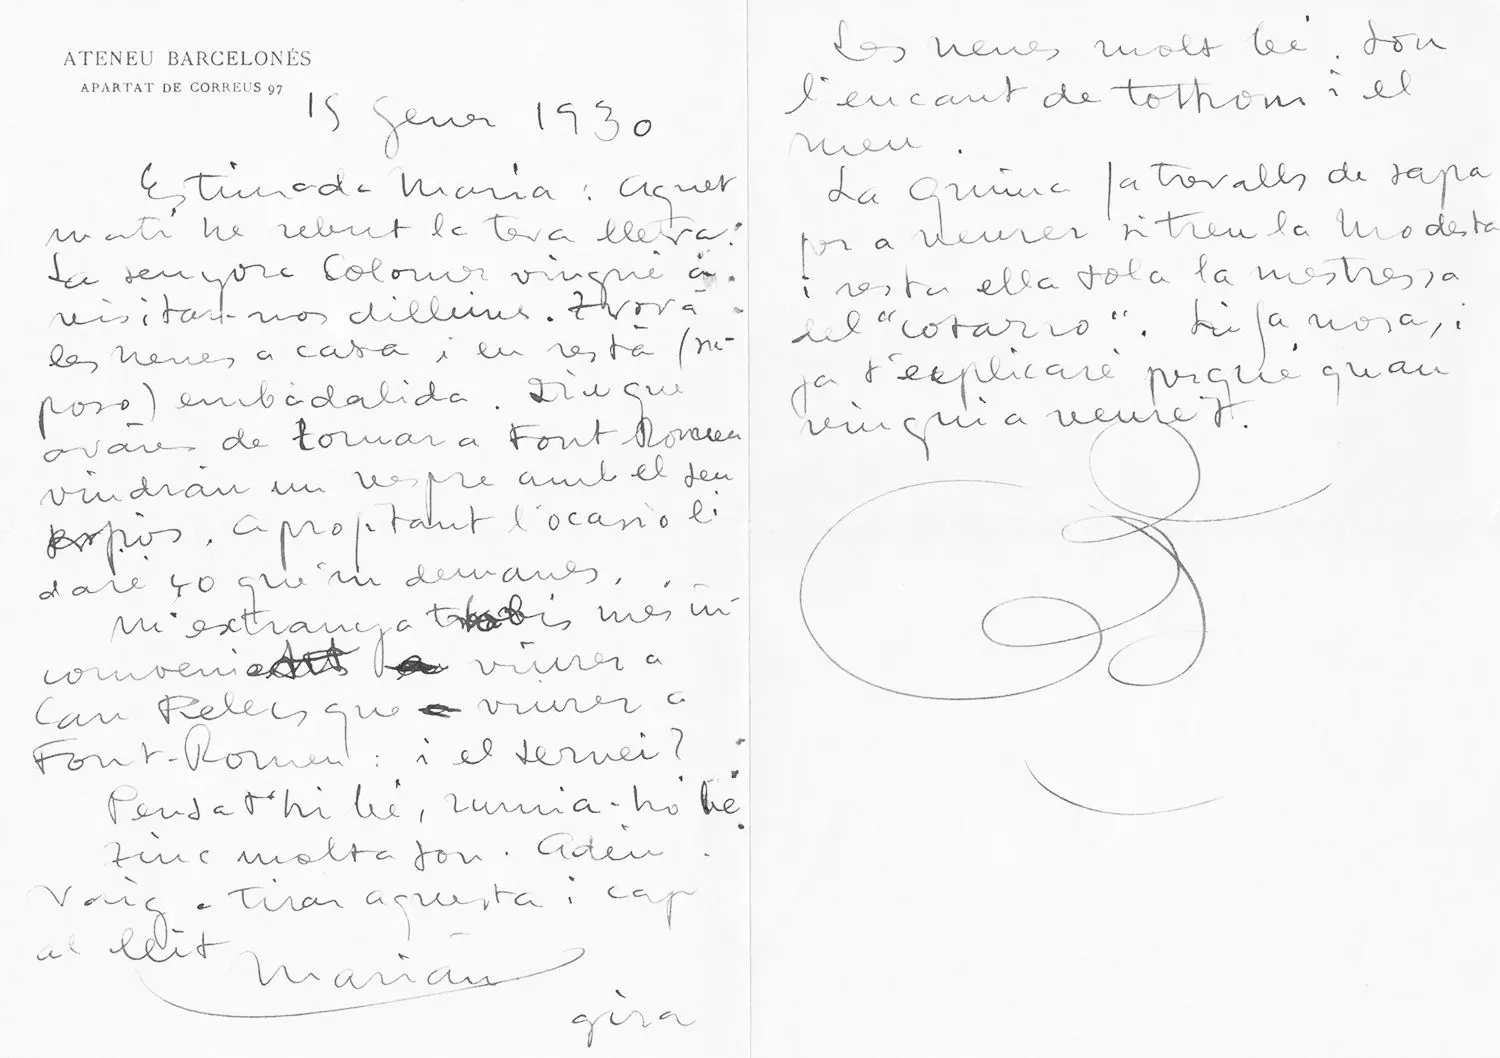 ATENEU BARCELONÉS
APARTAT DE CORREUS 97
15 gener 1930
Estimada Maria: Aquet
matí he rebut la teva lletra.
La senyora Colomer vingué a
visitar-nos dilluns. Trová
les nenes a casa i en restà (su-
poso) embadalida. Diu que
avans de tornar a Font Romeu
vindrán un vespre amb el seu
espós. Aprofitant l'ocasio li
daré ço que'm demanes.
M'extranya trobis més in
convenients viurer a
Can Relets que viurer a
Font-Romeu: i el servei?
Pensa t'hi bé, rumia-hó bé
Tinc molta son. Adeu.
Vaig a tirar aquesta i cap
al llit
Marián
gira
Les nenes molt bé. Son
l'encant de tothom i el
meu.
La Quima fa treballs de sapa
per a veurer si treu la Modesta
i resta ella sola la mestressa
del "cotarro". Li fa nosa, i
ja t'explicaré perqué quan
vingui a veure't.